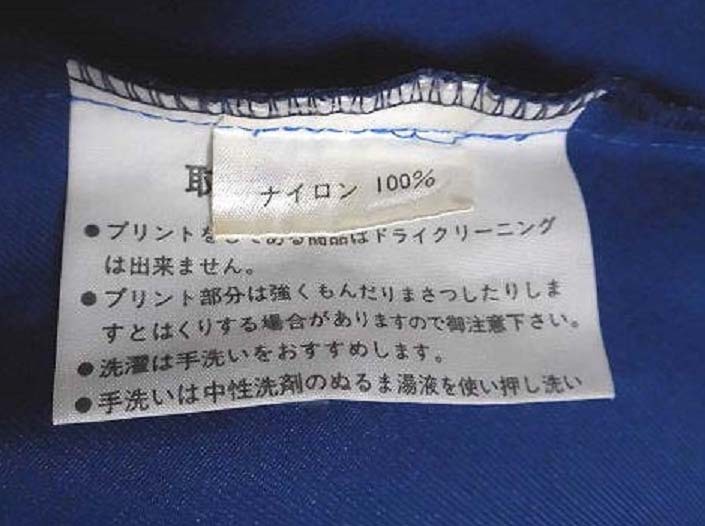 ナイロン 100%
取
●プリントをしてある商品はドライクリーニング
は出来ません。
●プリント部分は強くもんだりまさつしたりしま
すとはくりする場合がありますので御注意下さい。
●洗濯は手洗いをおすすめします。
●手洗いは中性洗剤のぬるま湯液を使い押し洗い